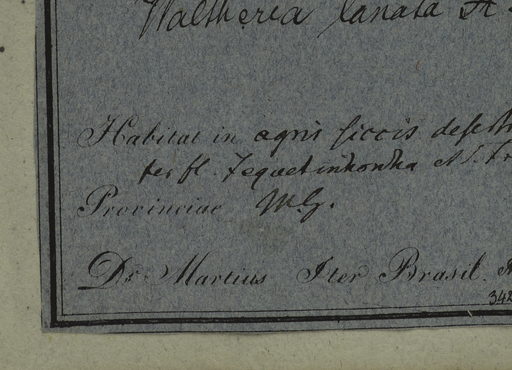 Waltheria lanata St
Habitat in agris siccis deserti
ter fl. Jequetinhonha et S. Fr
Provinciae M.G.
Dr. Martius Iter Brasil.
342